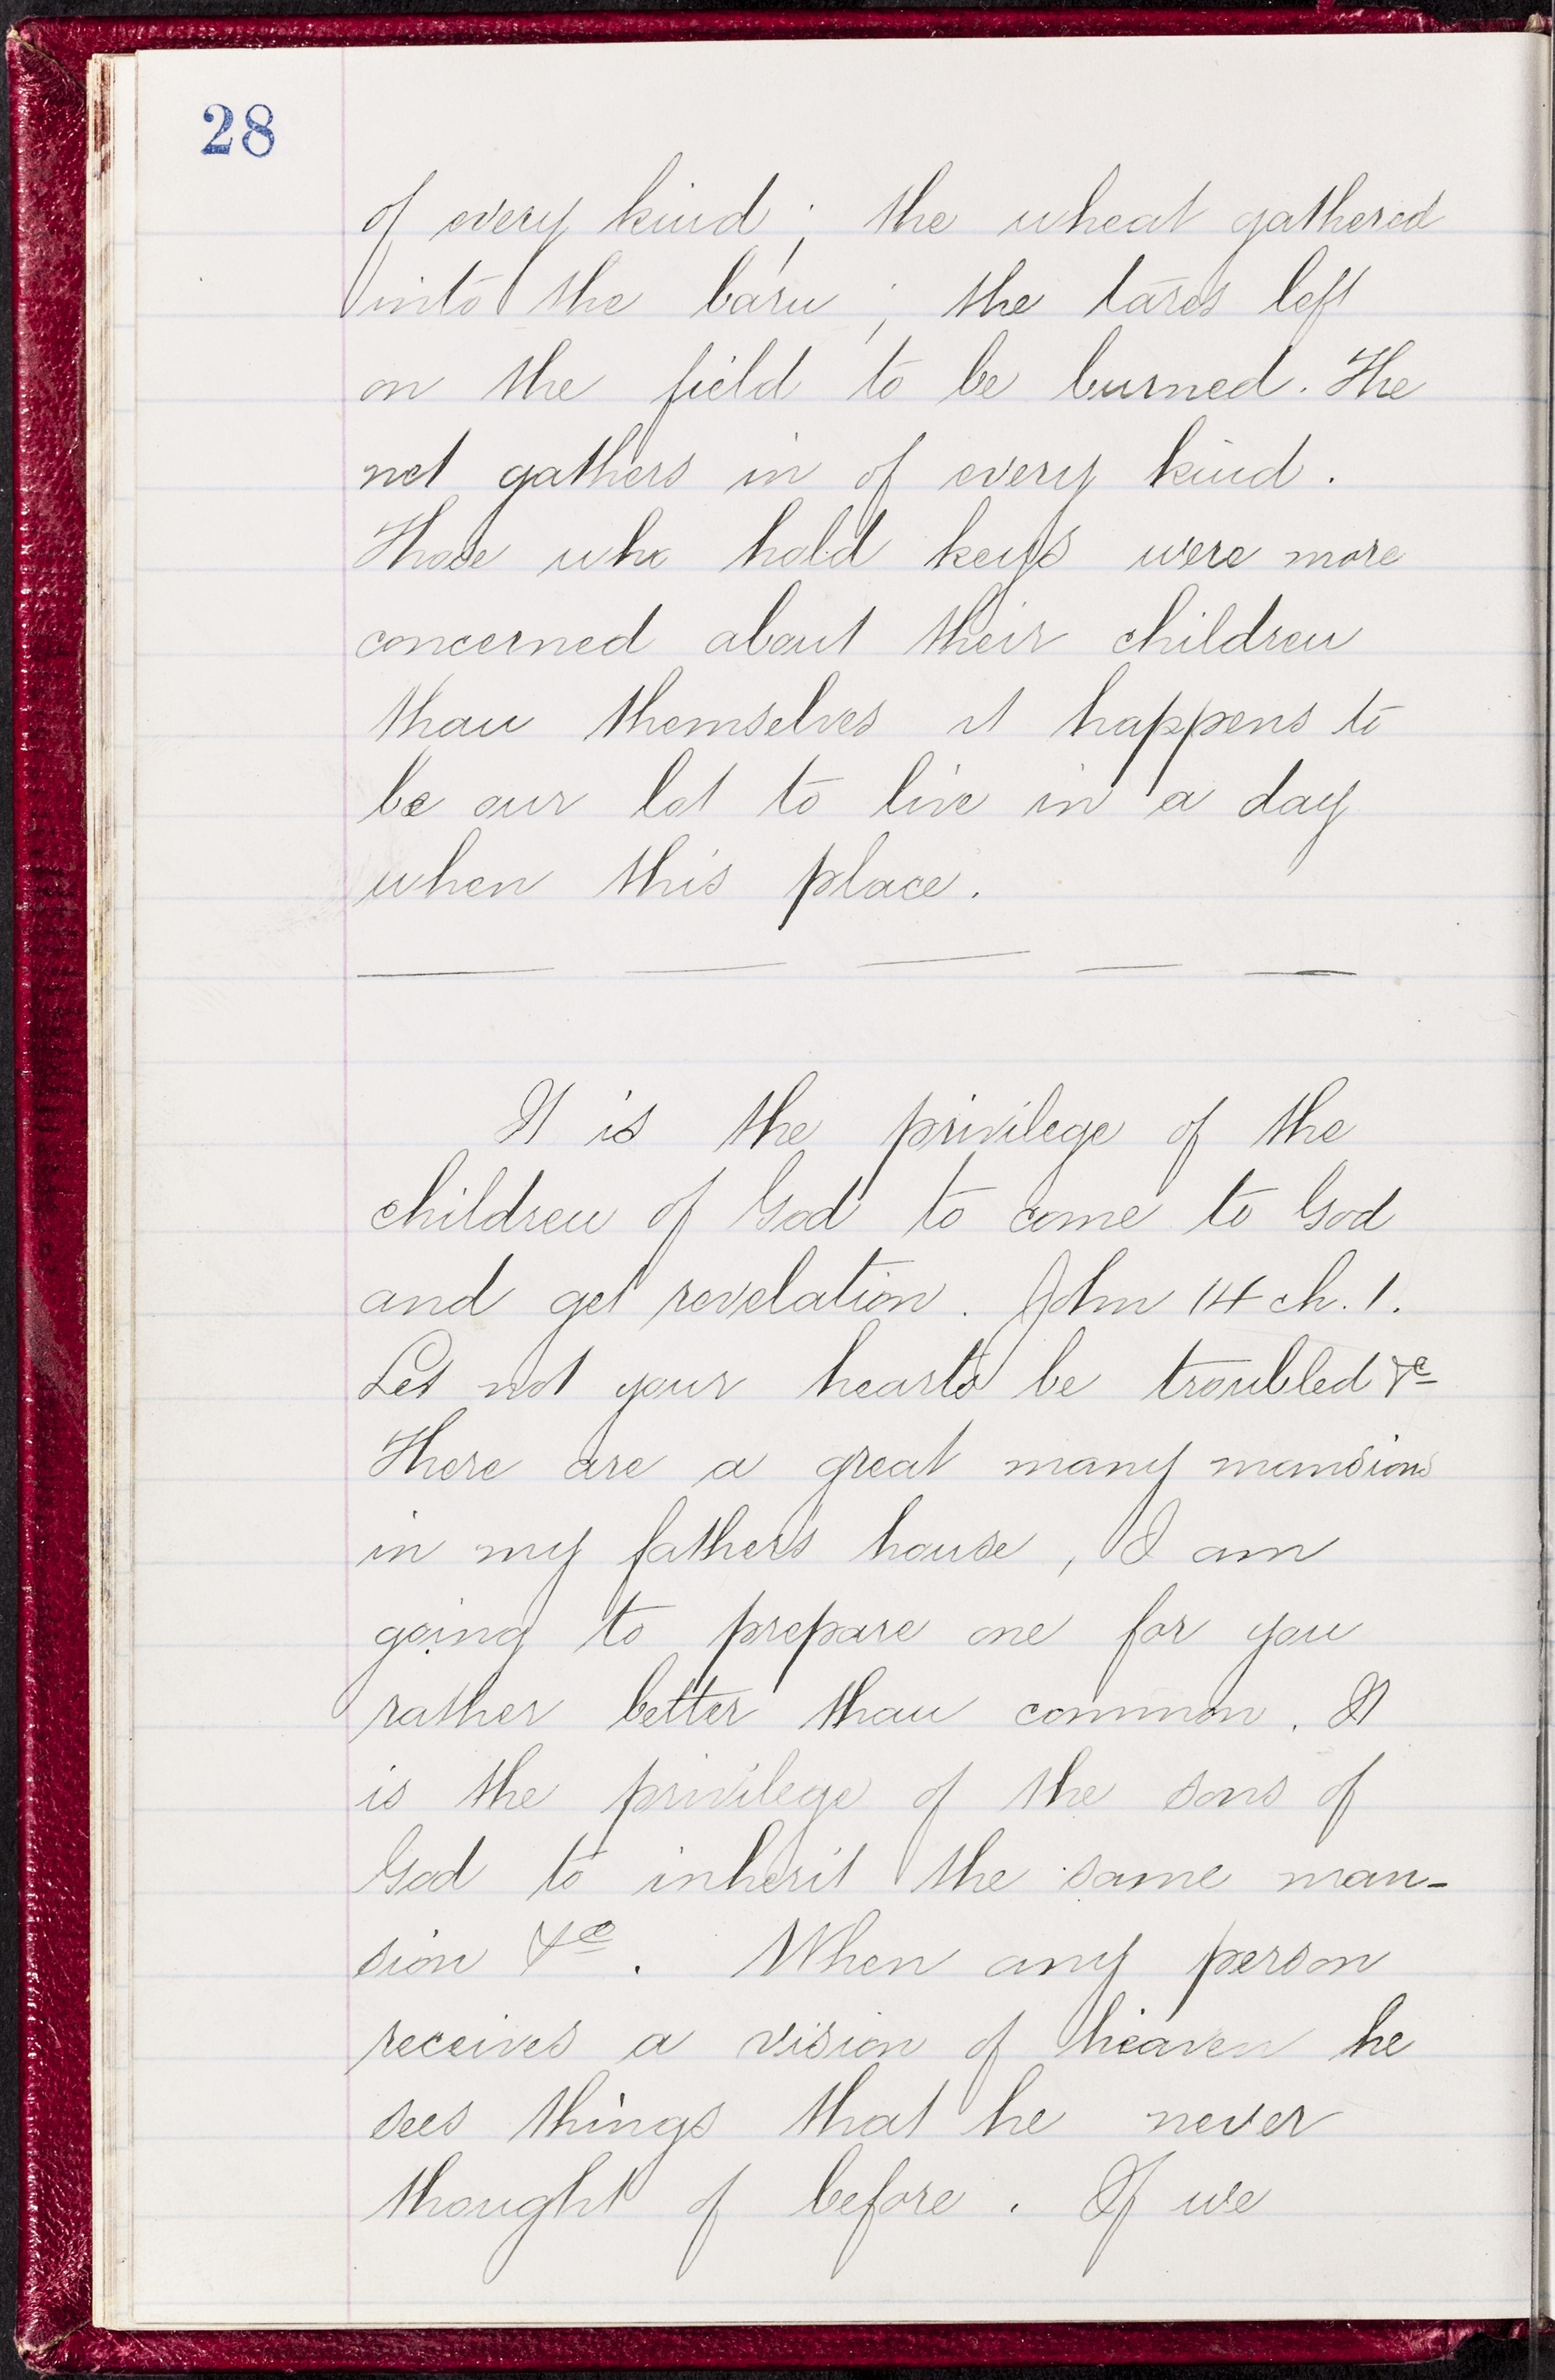 28
of every kind ; the wheat gathered
into the barn ; the tares left
on the field to be burned. The
net gathers in of every kind.
Those who hold keys were more
concerned about their children
than themselves it happens to
be our lot to live in a day
when this place.
It is the privilege of the
children of God to come to God
and get revelation. John 14 ch. 1.
Let not your hearts be troubled &c
There are a great many mansions
in my fathers house, I am
going to prepare one for you
rather better than common. It
is the privilege of the sons of
God to inherit the same man-
sion &c. When any person
receives a vision of heaven he
sees things that he never
thought of before. If we